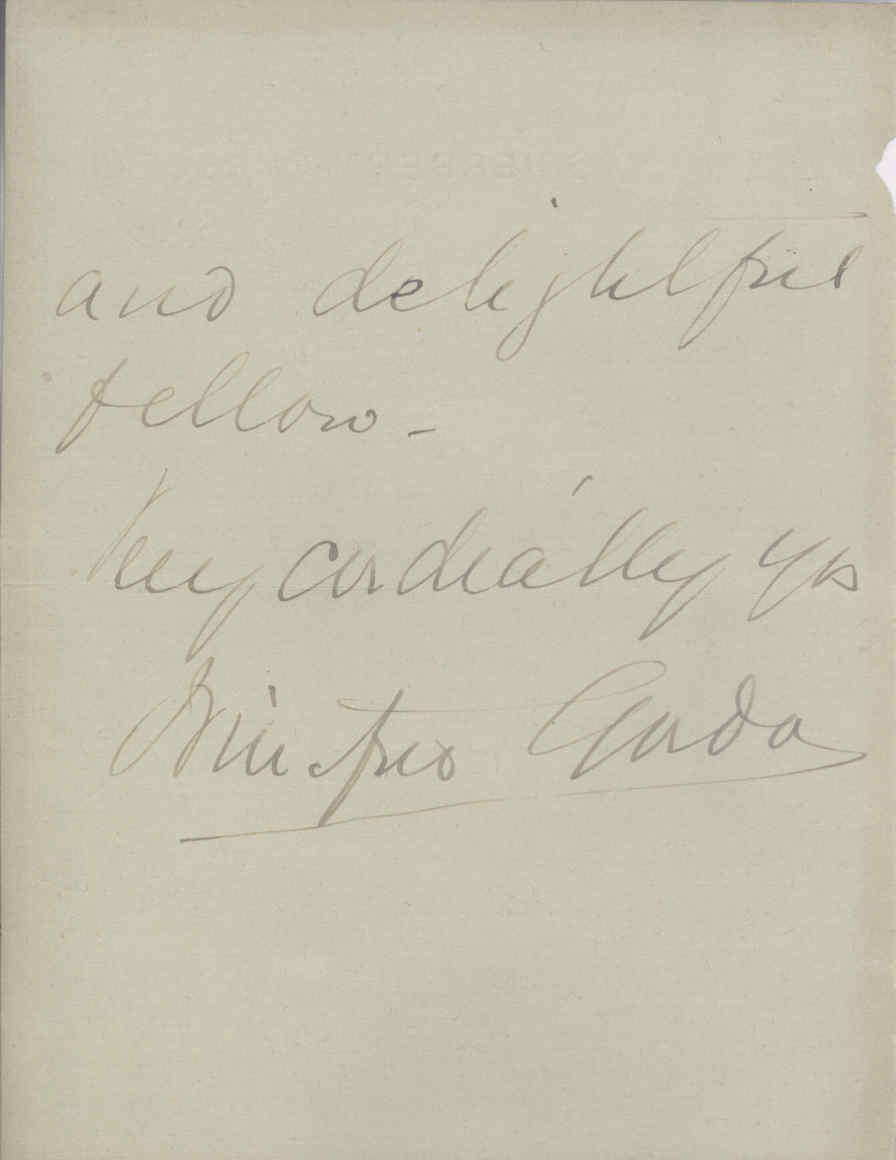 and delightful
fellow -
Very cordially yrs
Winifred Gordon